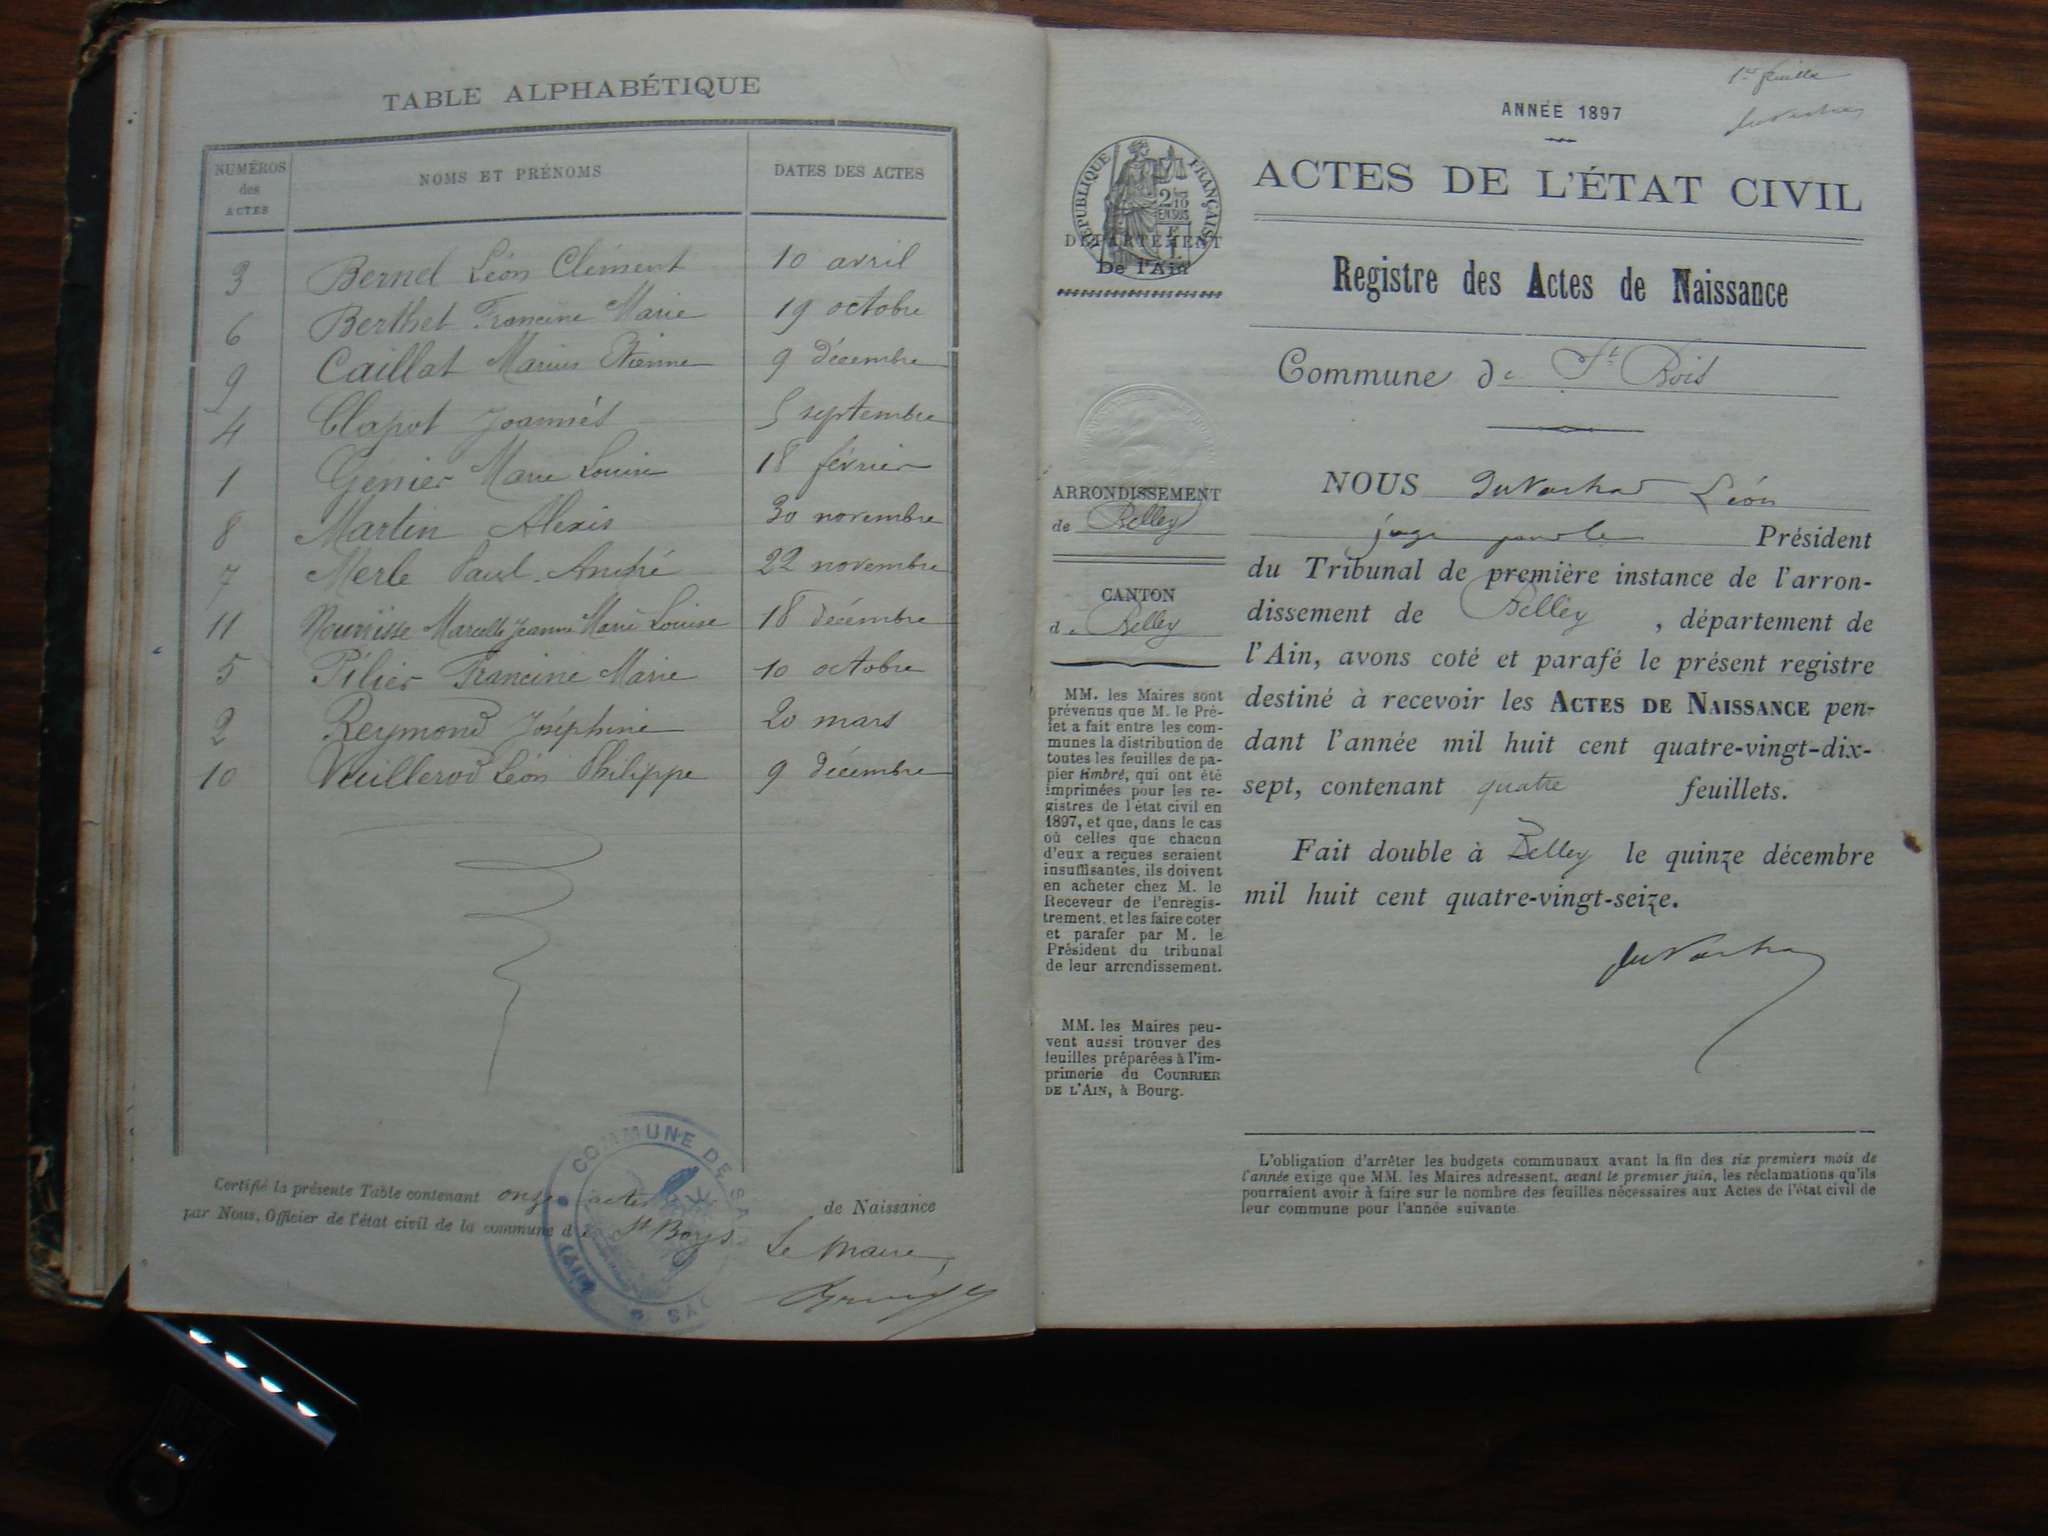 TABLE ALPHABÉTIQUE
NUMÉROS des ACTES
NOMS ET PRÉNOMS
DATES DES ACTES
3 Bernel Léon Clément 10 avril
6 Berthet Francine Marie 19 octobre
9 Caillat Marius Etienne 9 décembre
4 Clapot Joannès 5 septembre
1 Genier Marie Louise 18 février
8 Martin Alexis 30 novembre
7 Merle Paul André 22 novembre
11 Marcelle Jeanne Marie Louise 18 décembre
5 Pilier Francine Marie 10 octobre
2 Reymond Joséphine 20 mars
10 Vuillerod Léon Philippe 9 décembre
Certifié la présente Table contenant onze actes de Naissance
par Nous, Officier de l'état civil de la commune de St Boys
Le Maire,
COMMUNE DE SA
(AIN)
1er feuille
ANNÉE 1897
RÉPUBLIQUE FRANÇAISE
2/10 EN SUS
DÉPARTEMENT
De l'Ain
ACTES DE L'ÉTAT CIVIL
Registre des Actes de Naissance
Commune de St Bois
ARRONDISSEMENT
de Belley
CANTON
de Belley
MM. les Maires sont
prévenus que M. le Pré-
fet a fait entre les com-
munes la distribution de
toutes les feuilles de pa-
pier timbré, qui ont été
imprimées pour les re-
gistres de l'état civil en
1897, et que, dans le cas
où celles que chacun
d'eux a reçues seraient
insuffisantes, ils doivent
en acheter chez M. le
Receveur de l'enregis-
trement, et les faire coter
et parafer par M. le
Président du tribunal
de leur arrondissement.
MM. les Maires peu-
vent aussi trouver des
feuilles préparées à l'im-
primerie du COURRIER
DE L'AIN, à Bourg.
NOUS Léon
juge Président
du Tribunal de première instance de l'arron-
dissement de Belley, département de
l'Ain, avons coté et parafé le présent registre
destiné à recevoir les ACTES DE NAISSANCE pen-
dant l'année mil huit cent quatre-vingt-dix-
sept, contenant quatre feuillets.
Fait double à Belley le quinze décembre
mil huit cent quatre-vingt-seize.
L'obligation d'arrêter les budgets communaux avant la fin des six premiers mois de
l'année exige que MM. les Maires adressent, avant le premier juin, les réclamations qu'ils
pourraient avoir à faire sur le nombre des feuilles nécessaires aux Actes de l'état civil de
leur commune pour l'année suivante.